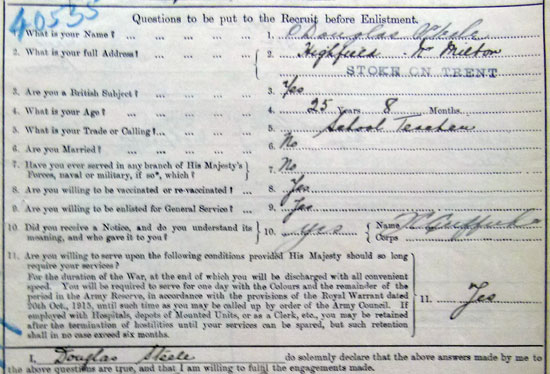 40535
Questions to be put to the Recruit before Enlistment.
1. What is your Name? ... ... ... ... 1. Douglas Steele
2. What is your full Address? ... ... ... 2. Highfield Nr Milton
STOKE ON TRENT
3. Are you a British Subject? ... ... ... 3. Yes
4. What is your Age? ... ... ... ... 4. 25 Years 8 Months.
5. What is your Trade or Calling? ... ... ... 5. School Teacher
6. Are you Married? ... ... ... ... 6. No
7. Have you ever served in any branch of His Majesty's
Forces, naval or military, if so*, which? 7. No
8. Are you willing to be vaccinated or re-vaccinated? ... 8. Yes
9. Are you willing to be enlisted for General Service? ... 9. Yes
10. Did you receive a Notice, and do you understand its
meaning, and who gave it to you? ... 10. yes Name
Corps
11. Are you willing to serve upon the following conditions provided His Majesty should so long
require your services?
For the duration of the War, at the end of which you will be discharged with all convenient
speed. You will be required to serve for one day with the Colours and the remainder of the
period in the Army Reserve, in accordance with the provisions of the Royal Warrant dated
20th Oct., 1915, until such time as you may be called up by order of the Army Council. If
employed with Hospitals, depots of Mounted Units, or as a Clerk, etc., you may be retained
after the termination of hostilities until your services can be spared, but such retention
shall in no case exceed six months.
11. Yes
I, Douglas Steele do solemnly declare that the above answers made by me to
the above questions are true, and that I am willing to fulfil the engagements made.